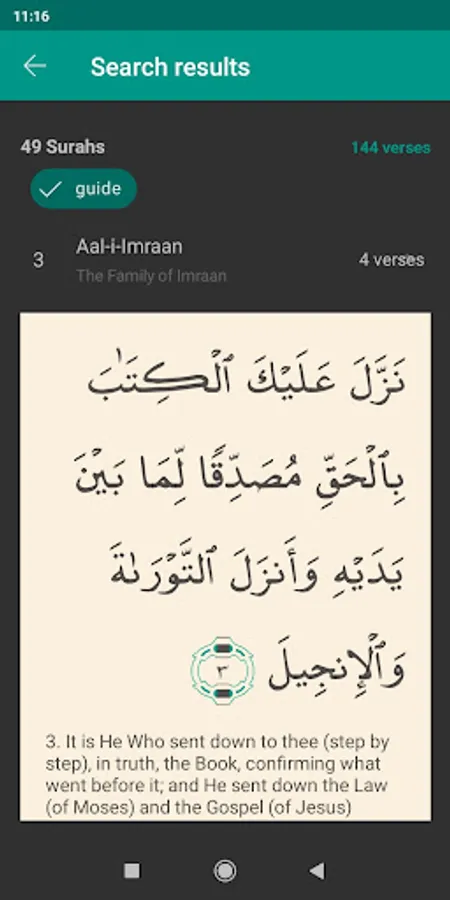 11:16
Search results
49 Surahs 144 verses
guide
3 Aal-i-Imraan 4 verses
The Family of Imraan
نَزَّلَ عَلَيْكَ ٱلْكِتَٰبَ
بِٱلْحَقِّ مُصَدِّقًا لِّمَا بَيْنَ
يَدَيْهِ وَأَنزَلَ ٱلتَّوْرَىٰةَ
وَٱلْإِنجِيلَ ٣
3. It is He Who sent down to thee (step by
step), in truth, the Book, confirming what
went before it; and He sent down the Law
(of Moses) and the Gospel (of Jesus)